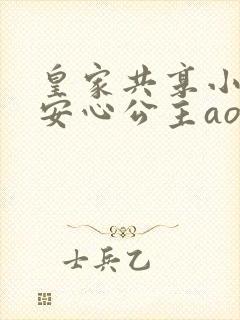 皇家共享小
安心公主ao
士兵乙